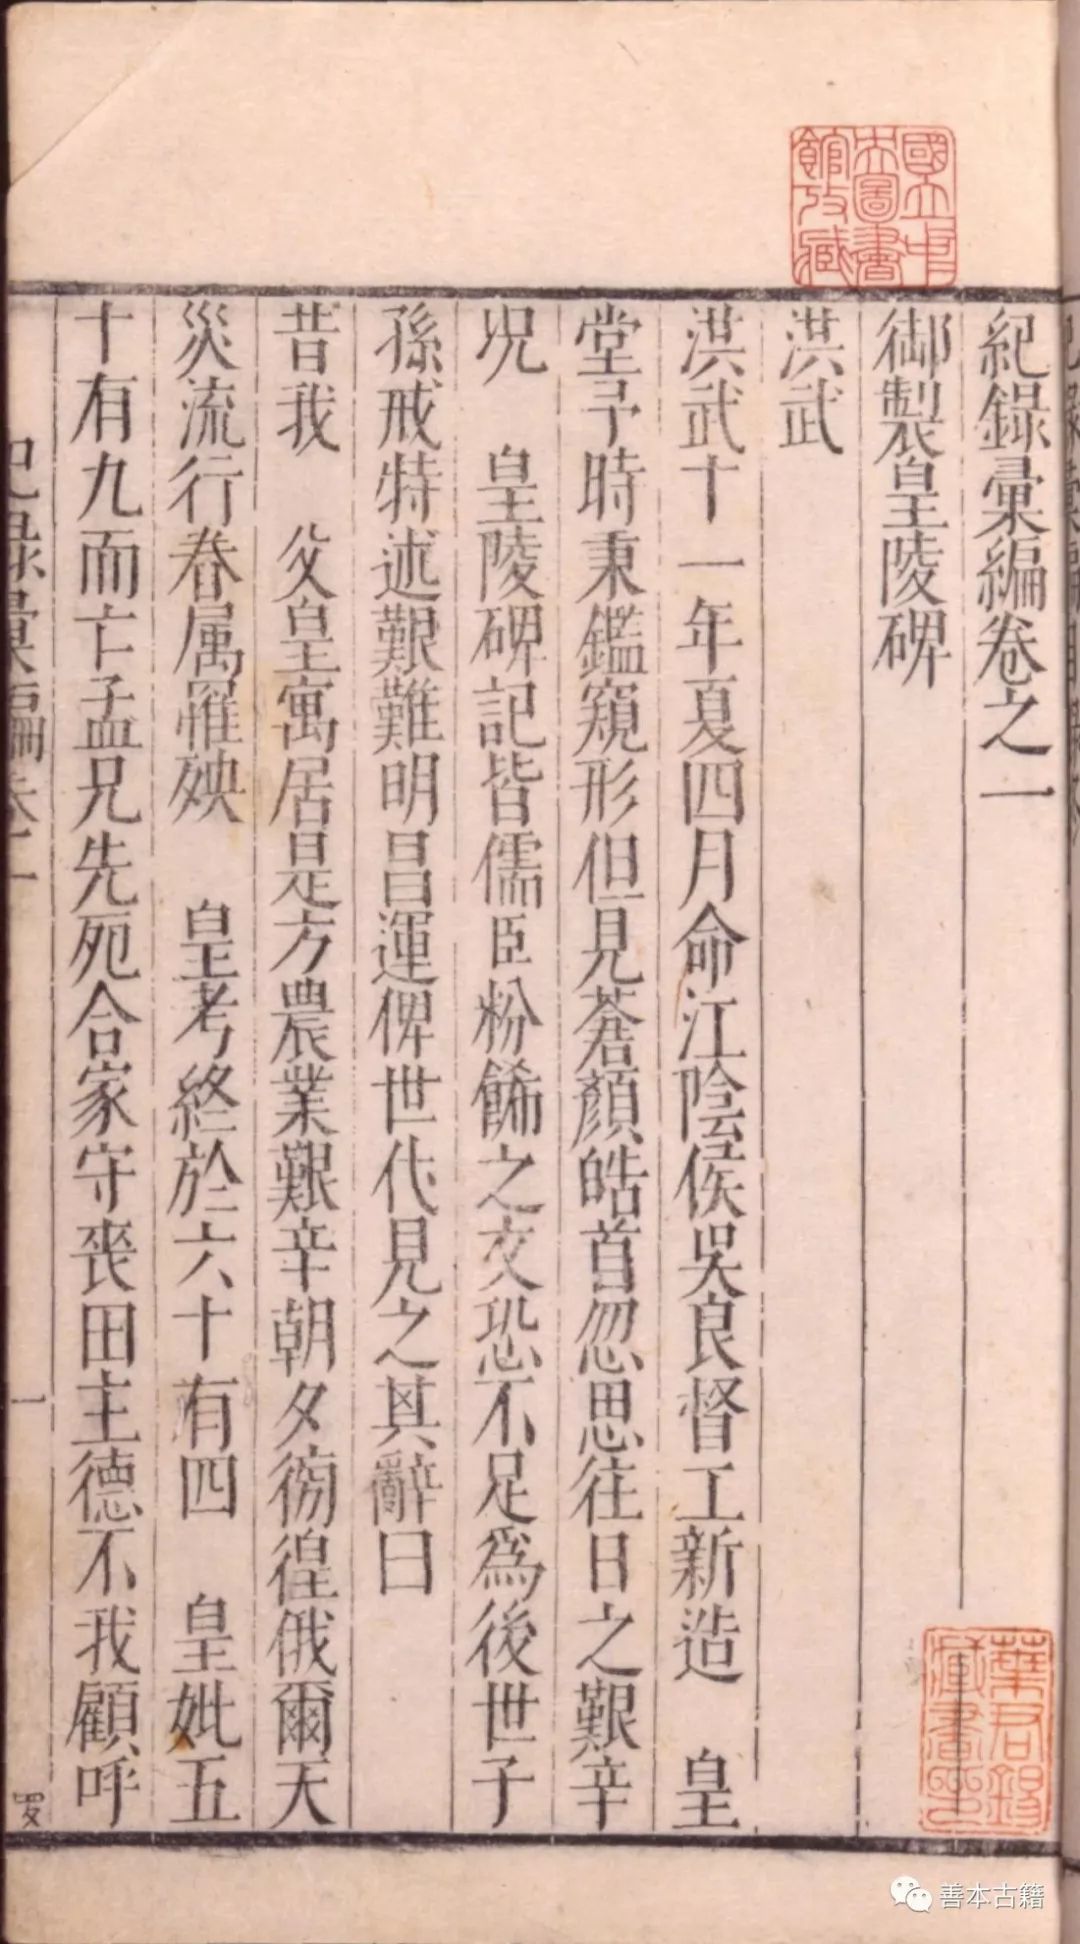 國立中
央圖書
館攷藏
紀錄彙編卷之一
御製皇陵碑
洪武
洪武十一年夏四月命江陰侯吳良督工新造　皇
堂予時秉鑑窺形但見蒼顏皓首忽思往日之艱辛
況　皇陵碑記皆儒臣粉餙之文恐不足為後世子
孫戒特述艱難明昌運俾世代見之其辭曰
昔我　父皇寓居是方農業艱辛朝夕徬徨俄爾天
災流行眷属罹殃　皇考終於六十有四　皇妣五
十有九而亡孟兄先死合家守喪田主德不我顧呼
一
葉君錫
藏書印
善本古籍